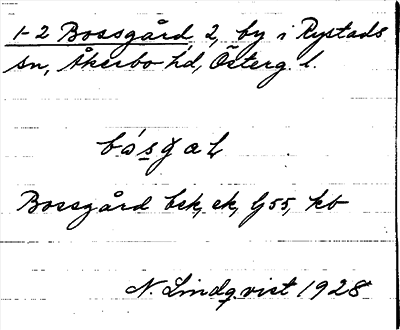 1-2 Bossgård, 2, by i Rystads
sn, Åkerbo hd, Österg. l.
Bossgård bek, ek, G55, kb
N. Lindqvist 1928